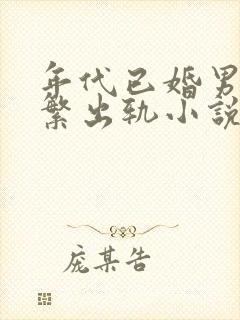 年代已婚男
繁出轨小說
庞某告